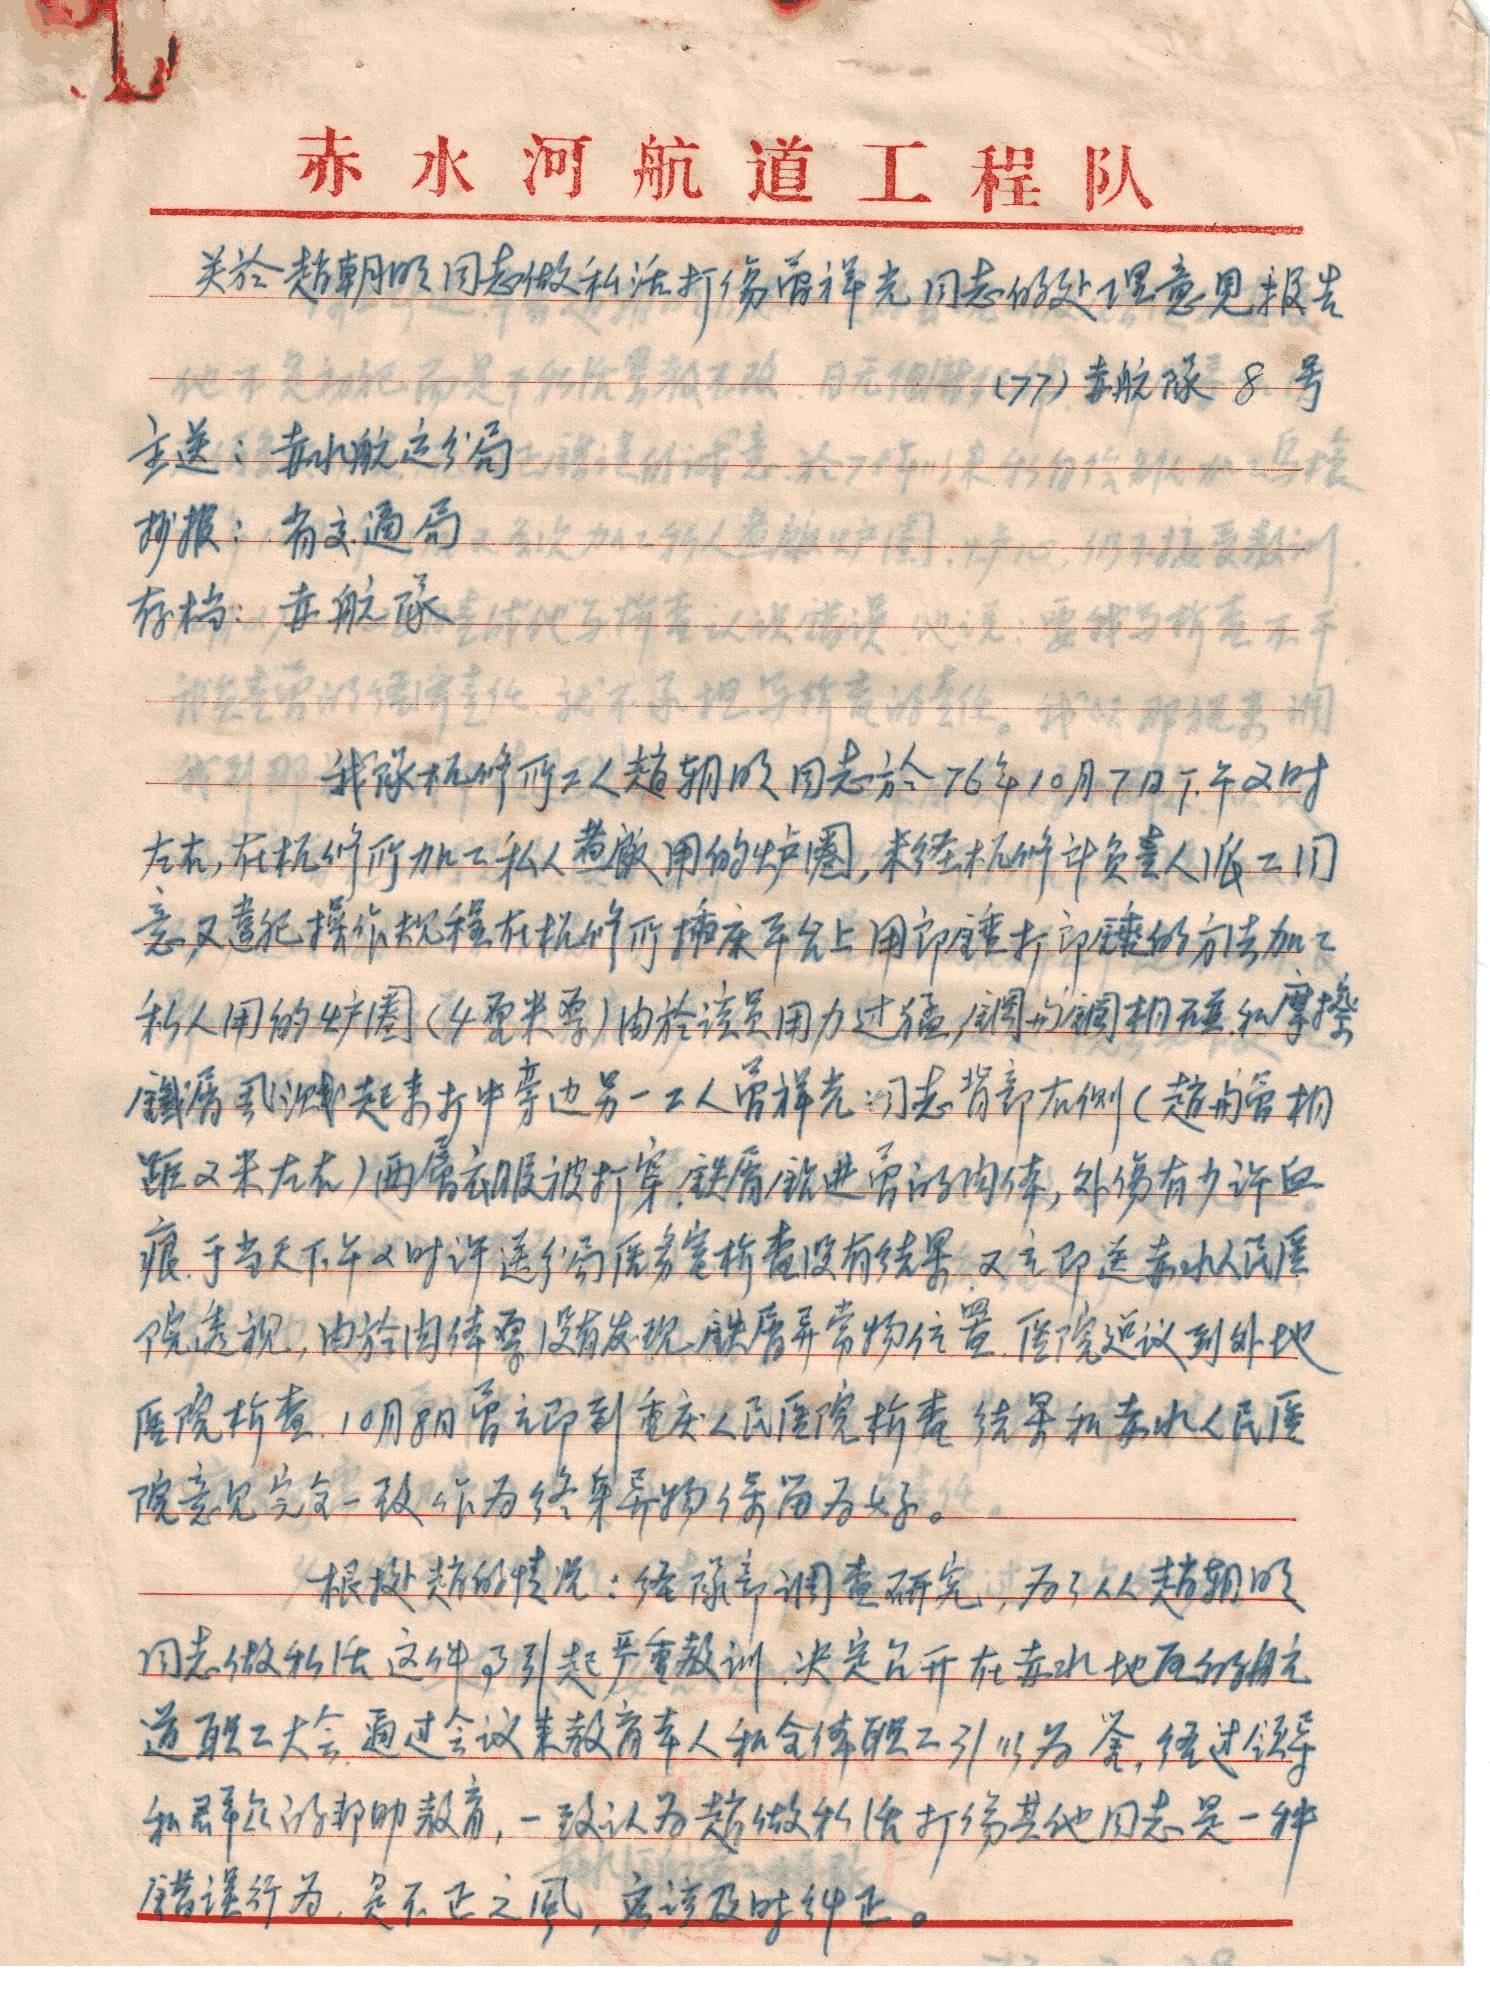 赤水河航道工程队
关於趙朝明同志做私活打伤曾祥光同志的处理意见报告
(77)赤航隊8号
主送：赤水航运分局
抄报：省交通局
存档：赤航隊
我隊机修所工人趙朝明同志於76年10月7日下午2时
左右，在机修所加工私人煮飯用的炉圈，未经机修计负责人派工同
意，又违犯操作规程在机修所插床平台上用郎錘打郎錘的方法加工
私人用的炉圈(4厘米厚)由於该员用力过猛，鋼与鋼相碰和摩擦
鐵屑飞溅起来打中旁边另一工人曾祥光同志背部右侧(趙与曾相
距2米左右)两層衣服被打穿，鉄屑鉆进曾的肉体，外伤有少许血
痕，于当天下午2时许送分局医务室检查没有结果，又立即送赤水人民医
院透视，由於肉体厚没有发现鉄屑异常物位置，医院建议到外地
医院检查，10月8日曾立即到重庆人民医院检查，结果和赤水人民医
院意见完全一致，作为终身异物保留为好。
根据趙的情况：经隊部调查研究，为了从趙朝明
同志做私活这件事引起严重教训，决定召开在赤水地区的航
道职工大会，通过会议来教育本人和全体职工引以为鉴，经过领导
和群众的帮助教育，一致认为趙做私活打伤其他同志是一种
错误行为，是不正之风，应该及时纠正。